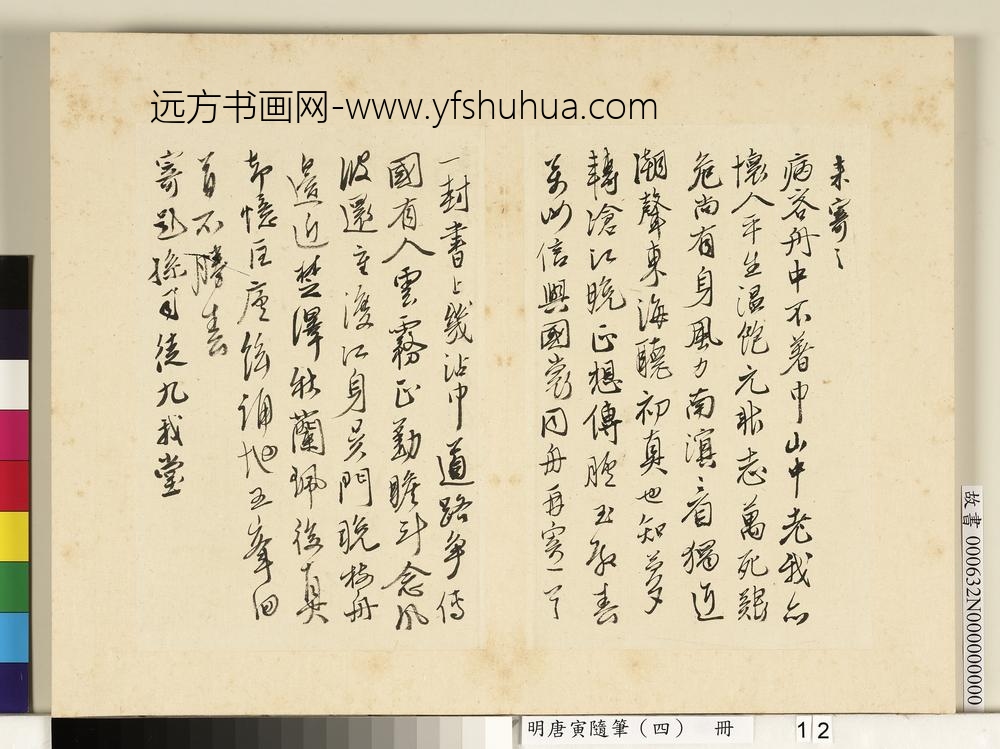 远方书画网-www.yfshuhua.com
来寄之
病客舟中不著巾山中老我亦
懷人平生温飽元非志萬死艱
危尚有身風力南溟看獨近
潮聲東海聽初真也知夢
轉滄江晚正想傳臚玉殿春
信與國裳同舟再寄一首
一封書上幾沾巾道路争傳
國有人雲霧正勤瞻斗念風
波還主渡江身吳門晚榜舟
邊近楚澤秋蘭珮後真
却憶匡廬舘誦地五峯回
首不勝春
寄題孫司徒九我堂
故書 000632N000000000
明唐寅隨筆（四） 冊 12